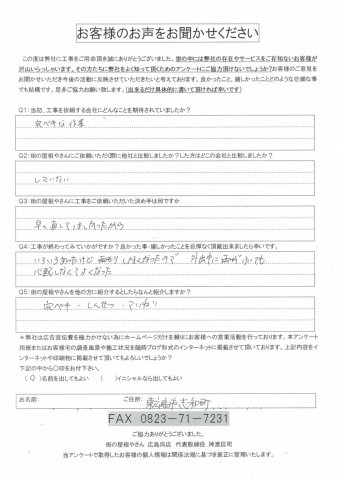 お客様のお声をお聞かせください
この度は弊社に工事をご用命頂き誠にありがとうございました。街の中には弊社の存在やサービスをご存知ないお客様が
沢山いらっしゃいます。その方たちに弊社をよく知って頂くためのアンケートにご協力頂けないでしょうか?お客様のご意見を
お聞かせいただき今後の活動に反映させていただきたいと考えております。良かったこと、嬉しかったことどのような些細な事
でも結構です。是非ご協力お願い致します。(出来るだけ具体的に書いて頂ければ幸いです)
Q1:当初、工事を依頼する会社にどんなことを期待されていましたか?
完ペキな作業
Q2:街の屋根やさんにご依頼いただく際に他社と比較しましたか?した方はどこの会社と比較しましたか?
していない
Q3:街の屋根やさんに工事をご依頼いただいた決め手は何ですか
早く直してほしかったから
Q4:工事が終わってみていかがですか?良かった事・嬉しかったことを忌憚なく頂戴出来ましたら幸いです。
いろいろあったけど 雨もり しなくなったので 外出中に雨がふっても
心配しなくてよくなった
Q5:街の屋根やさんを他の方に紹介するとしたらなんと紹介しますか?
完ペキ ・しんせつ ・ていねい
＊弊社は広告宣伝費を極力かけない為にホームページだけを頼りにお客様への営業活動を行っております。本アンケート
用紙またはお客様宅の調査風景や施工状況を随時ブログ形式のインターネットに掲載させて頂いております。上記内容をイ
ンターネットや印刷物に掲載させて頂いてもよろしいでしょうか?
下記の中から〇印をお付下さい。
(○)名前を出してもよい ( )イニシャルなら出してもよい
お名前: ご住所: 東広島市志和町
FAX 0823-71-7231
ご協力ありがとうございました。
街の屋根やさん 広島呉店 代表取締役 神渡信司
当アンケートで取得したお客様の個人情報は関係法規に基づき厳正に管理いたします。